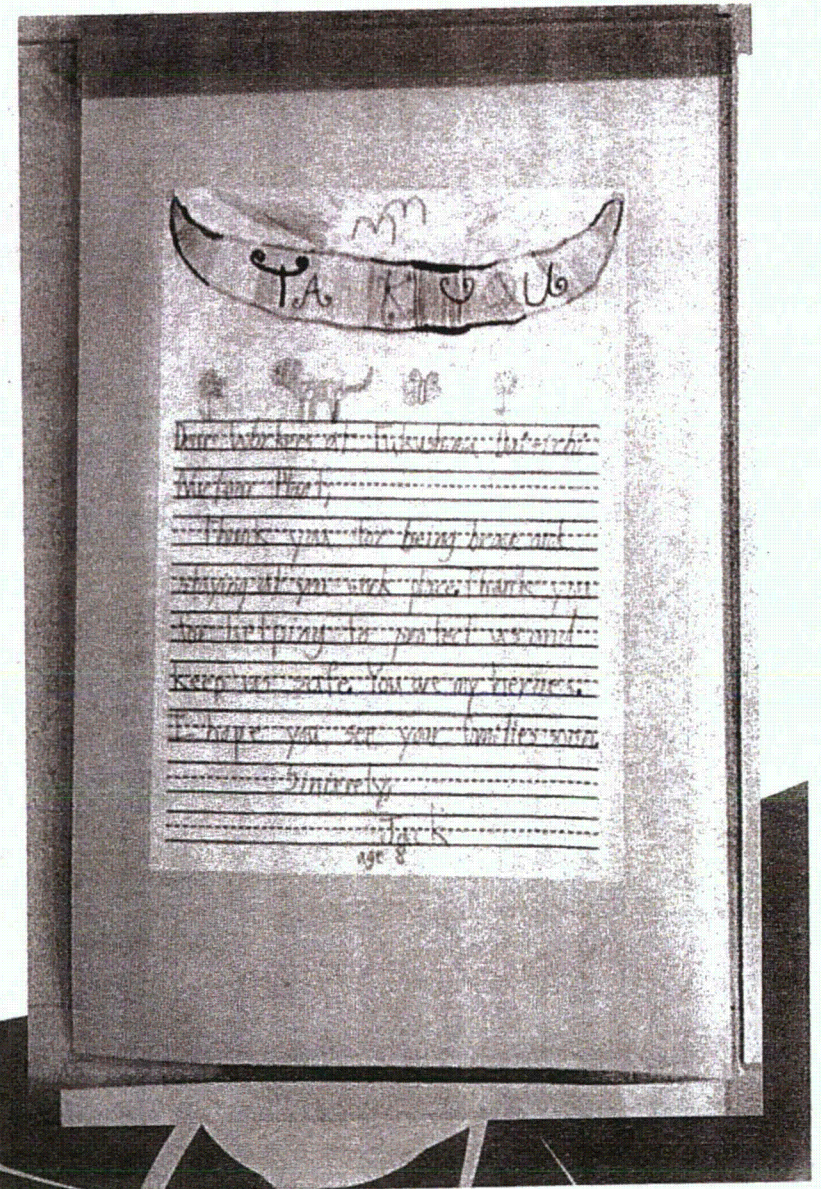 TAK U
Dear Workers at Fukushima Daiichi
Nuclear Plant,
Thank you for being brave and
staying at you work place. Thank you
for helping to protect us and
keep us safe. You are my heroes.
I hope you see your families soon.
Sincerely,
Jack
age 8